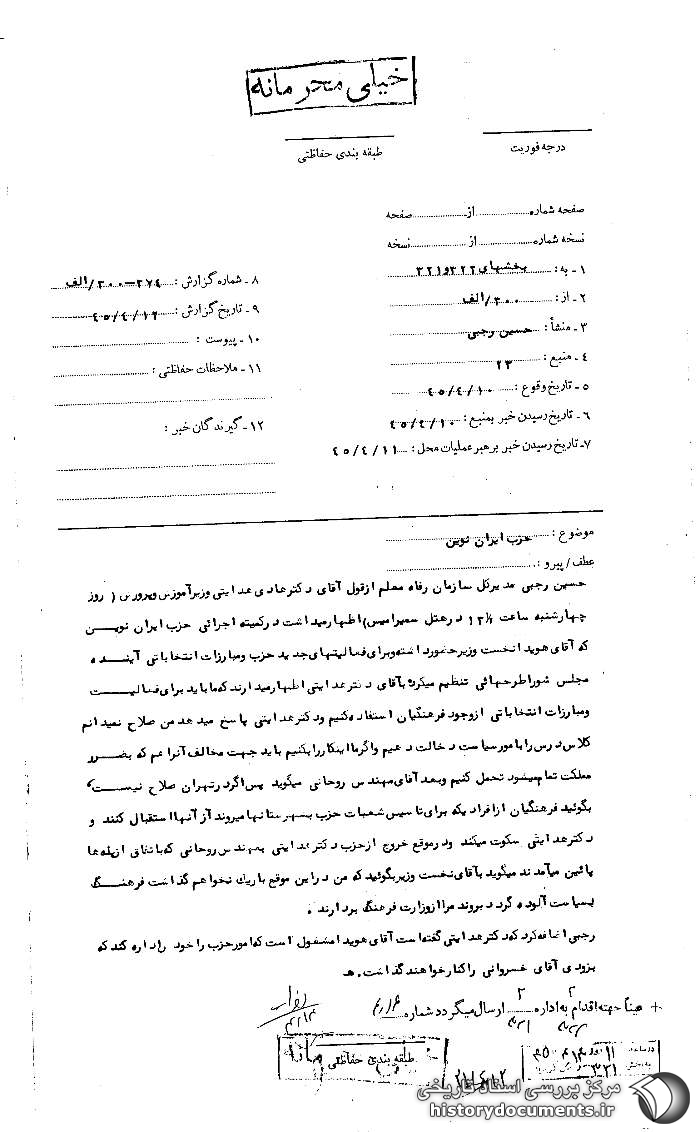 خیلی محرمانه
درجه فوریت
طبقه بندی حفاظتی
صفحه شماره ......... از ......... صفحه
نسخه شماره ......... از ......... نسخه
۱ - به : بخشهای ۳۲۲ و ۳۲۱
۲ - از : ۳۰۰/الف
۳ - منشأ : حسین رجبی
۴ - منبع : ۲۳
۵ - تاریخ وقوع : ۴۵/۴/۱۰
۶ - تاریخ رسیدن خبر بمنبع : ۴۵/۴/۱۰
۷ - تاریخ رسیدن خبر برهبر عملیات محل : ۴۵/۴/۱۱
۸ - شماره گزارش : ۲۷۴-۳۰۰/الف
۹ - تاریخ گزارش : ۴۵/۴/۱۲
۱۰ - پیوست :
۱۱ - ملاحظات حفاظتی :
۱۲ - گیرندگان خبر :
موضوع : حزب ایران نوین
عطف / پیرو :
حسین رجبی مدیرکل سازمان رفاه معلم ازقول آقای دکترهادی هدایتی وزیرآموزش وپرورش ( روز
چهارشنبه ساعت ۱۲ درهتل سمیرامیس) اظهارمیداشت درکمیته اجرائی حزب ایران نویــن
که آقای هویدا نخست وزیرحضورداشته وبرای فعالیتهای جدید حزب ومبارزات انتخاباتی آینــده
مجلس شوراطرحهائی تنظیم میکرد بآقای دکترهدایتی اظهارمیدارند که ما باید برای فعالیــت
ومبارزات انتخاباتی ازوجود فرهنگیان استفاده کنیم ودکترهدایتی پاسخ میدهد من صلاح نمیدانم
کلاس درس را بامورسیاست دخالت دهیم واگرمااینکاررابکنیم باید جهت مخالف آنراهم که بضــرر
مملکت تمام میشود تحمل کنیم وبعد آقای مهندس روحانی میگوید پس اگردرتهران صلاح نیست
بگوئید فرهنگیان ازافراد یکه برای تاسیس شعبات حزب بشهرستانها میروند از آنها استقبال کنند و
دکترهدایتی سکوت میکند ودرموقع خروج ازحزب دکترهدایتی بمهندس روحانی که باتفاق ازپله ها
پائین میآمدند میگوید بآقای نخست وزیربگوئید که من دراین موقع باریك نخواهم گذاشت فرهنـگ
بسیاست آلوده گردد بروند مراازوزارت فرهنگ بردارند .
رجبی اضافه کرد که دکترهدایتی گفته است آقای هویدا مشغول است که امورحزب را خود اداره کند که
بزودی آقای خسروانی را کنارخواهند گذاشت. هـ
+ عیناً جهته اقدام به اداره ارسال میگردد شماره
طبقه بندی حفاظتی
مرکز بررسی اسناد تاریخی
historydocuments.ir